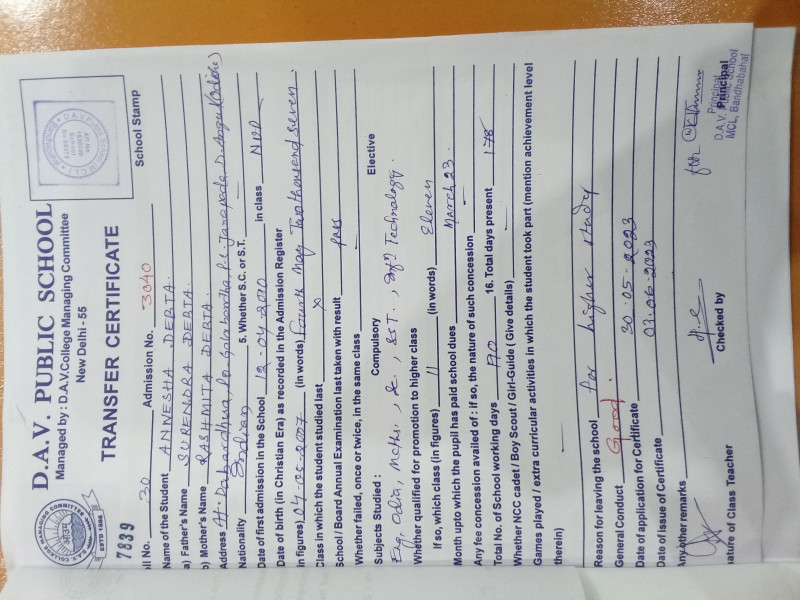 D.A.V. PUBLIC SCHOOL
Managed by : D.A.V.College Managing Committee
New Delhi - 55
TRANSFER CERTIFICATE
School Stamp
7839
ll No. 30 Admission No. 3040
Name of the Student ANNESHA DEBTA
a) Father's Name SURENDRA DEBTA
b) Mother's Name RASHMITA DEBTA
Address At-
Nationality Indian 5. Whether S.C. or S.T. —
Date of first admission in the School 12-04-2010 in class
Date of birth (in Christian Era) as recorded in the Admission Register
in figures) 04-05-2007 (in words) Fourth May Two thousand seven.
Class in which the student studied last X
School / Board Annual Examination last taken with result pass
Whether failed, once or twice, in the same class —
Subjects Studied : Compulsory Elective
Eng, Odia, Maths., Sc., SST., Infn Technology.
Whether qualified for promotion to higher class
If so, which class (in figures) 11 (in words) Eleven
Month upto which the pupil has paid school dues March 23.
Any fee concession availed of : if so, the nature of such concession —
Total No. of School working days 190 16. Total days present 178
Whether NCC cadet / Boy Scout / Girl-Guide ( Give details) —
Games played / extra curricular activities in which the student took part (mention achievement level
therein) —
Reason for leaving the school for higher study
General Conduct Good.
Date of application for Certificate 30-05-2023
Date of Issue of Certificate 02-06-2023
Any other remarks
ature of Class Teacher
Checked by
for
Principal
Principal
D.A.V. Public School
MCL, Bandhabahal